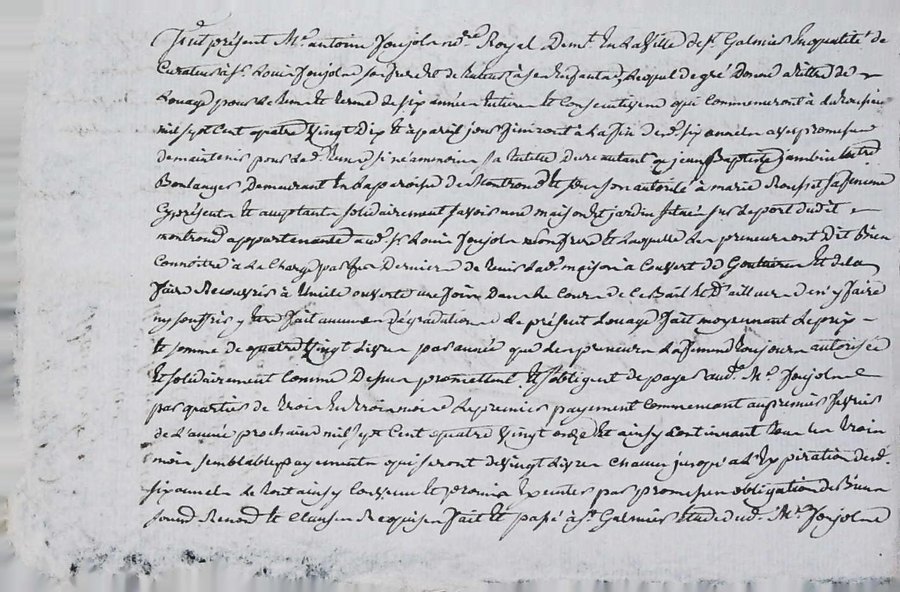 Fut présent Me antoine Joujolne nre Royal Demt En la Ville de St Galmier En qualité de
Curateur à Sr Louis Joujolne son frere Lequel de gré Donne à titre de
Louage pour le tems et terme de six années Entieres et Consecutives qui Commenceront à
mil sept Cent quatre Vingt Dix et à pareil jour finiront à la fin des six années avec promesse
de maintenir pendant led. tems si neammoins sa tutelle Dure autant à jean Baptiste
Boulanger Demeurant En la paroisse de Montrond et sous son autorité à marie Rousset sa femme
Cy présents et acceptants solidairement savoir une maison et jardin situés sur le port dudit
montrond appartenants aud. Sr Louis Joujolne son frere et laquelle les preneurs ont Dit Bien
Connoitre à la Charge par eux Dernier de tenir lad. maison à Couvert de Goutieres et de la
faire Recouvrir à thuile ouverte une fois Dans le Cours de ce Bail et D'ailleurs de n'y faire
ny souffrir y etre fait aucunes Dégradations le présent Louage fait moyennant le prix
et somme de quatre Vingt Livres par année que les preneurs La femme toujours autorisée
et solidairement Comme Dessus promettent et s'obligent de payer aud. Me Joujolne
par quartier de trois En trois mois le premier payement Commencant au premier fevrier
de L'année prochaine mil sept Cent quatre Vingt onze et ainsy Continuant tous les trois
mois semblables payements qui seront de Vingt Livres Chacun jusqu'à L'Expiration desd.
six années le tout ainsy Convenu et promis Executer par promesses obligation de Biens
soumd Renond et Clauses Requises fait et passé à St Galmier Etude dud. Me Joujolne